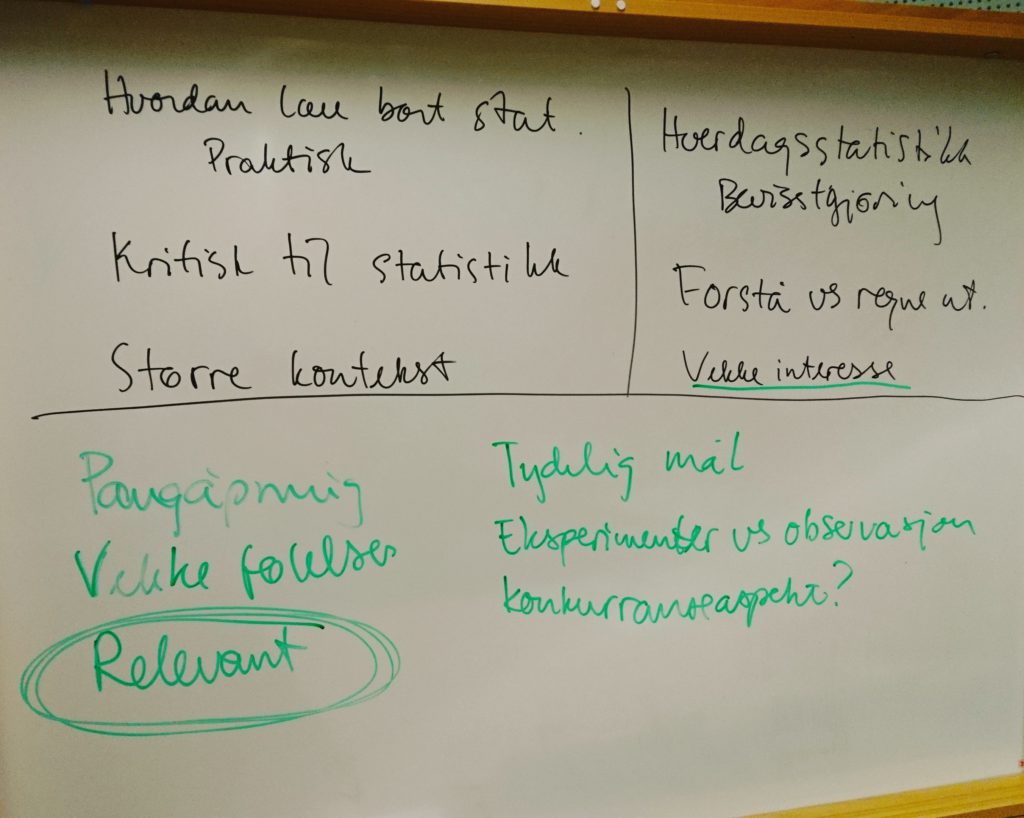 Hvordan lære bort stat.
Praktisk
Kritisk til statistikk
Større kontekst
Hverdagsstatistikk
Bevisstgjøring
Forstå vs regne ut.
Vekke interesse
Vekke følelser
Relevant
Tydelig mål
Eksperimenter vs observasjon
konkurranseaspekt?